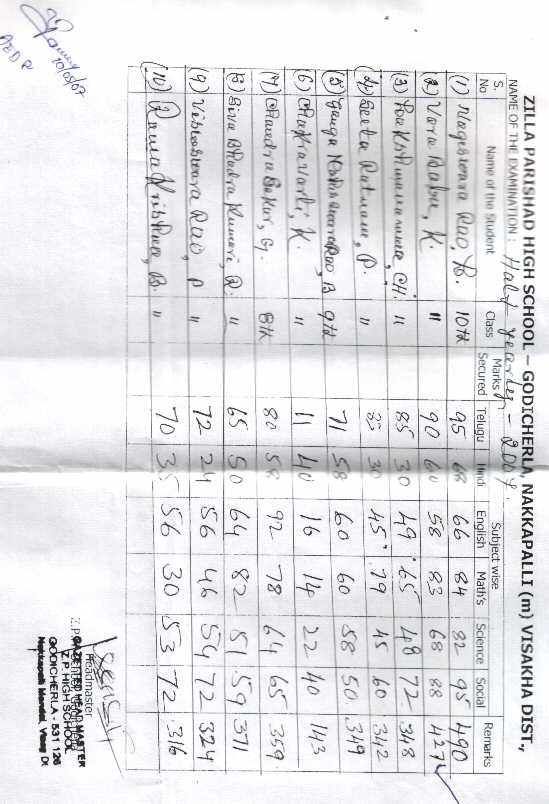 ZILLA PARISHAD HIGH SCHOOL – GODICHERLA, NAKKAPALLI (m) VISAKHA DIST.,
NAME OF THE EXAMINATION : Half - yearly - 2007.
S. No Name of the Student Class Marks Secured Subject wise Remarks
Telugu Hindi English Math's Science Social
(1) Nageswara Rao, B. 10th 95 68 66 84 82 95 490
(2) Vara Babu, K. " 90 60 58 83 68 88 427
(3) CH. " 85 30 49 65 48 72 348
(4) Seeta Ratnam, P. " 83 30 45 79 45 60 342
(5) Ganga Rao, B 9th 71 58 60 60 58 50 349
(6) Chakravarti, K. " 11 40 16 14 22 40 143
(7) Chandra Sekar, G. 8th 80 58 92 78 64 65 359
(8) Siva Bhadra Kumari, R. " 65 50 64 82 51 59 371
(9) Visweswara Rao, P " 72 24 56 46 54 72 324
(10) Rama Krishna, B. " 70 35 56 30 53 72 316
10/05/07
Headmaster
GAZETTED HEAD MASTER
Z.P. HIGH SCHOOL
GODICHERLA - 531 126
Nakkapalli Mandal, Visag Di